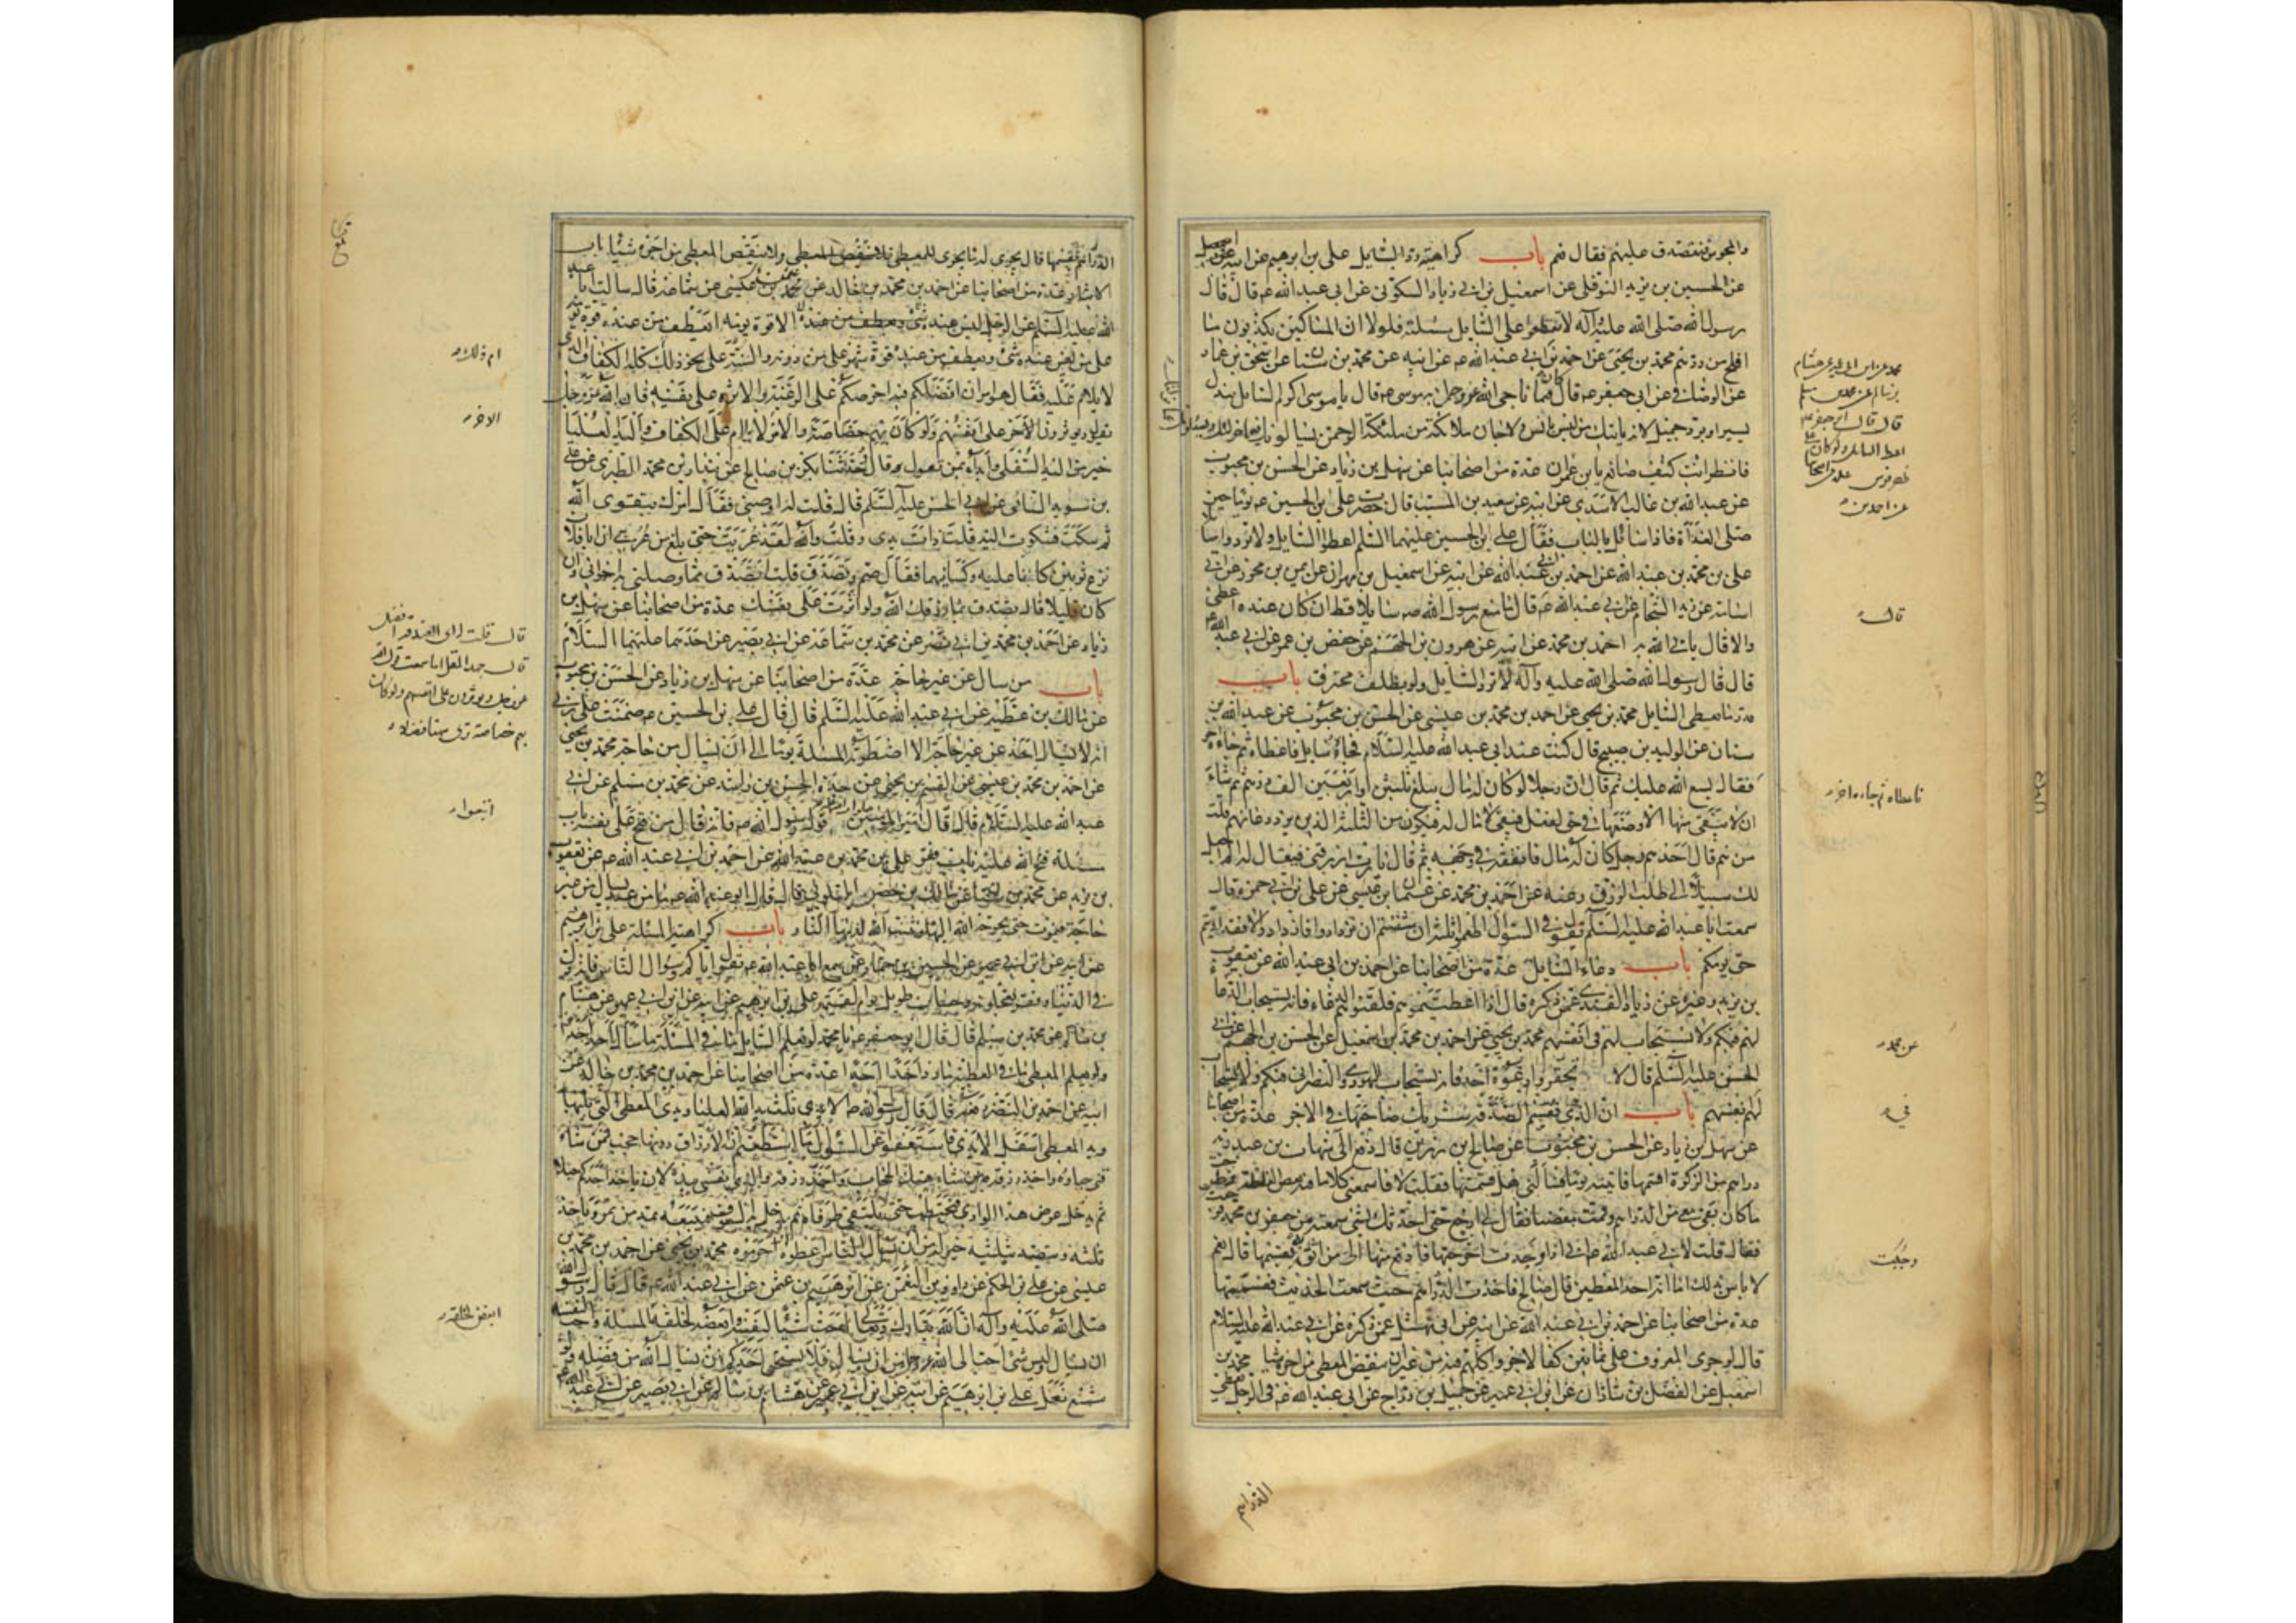 والمجوس فنتصدق عليهم فقال نعم باب كراهية رد السايل علي بن ابرهيم عن ابيه
عن الحسين بن يزيد النوفلي عن اسمعيل بن ابي زياد السكوني عن ابي عبد الله ع قال قال
رسول الله صلى الله عليه وآله لا تقطعوا على السايل مسئلته فلولا ان المساكين يكذبون ما
افلح من ردهم محمد بن يحيى عن احمد بن ابي عبد الله عن ابيه عن محمد بن سنان عن اسحق بن عمار
عن الوصافي عن ابي جعفر ع قال كان فيما ناجى الله عز وجل به موسى ع قال يا موسى اكرم السايل ببذل
يسير او برد جميل لانه ياتيك من ليس بانس ولا جان ملائكة من ملئكة الرحمن
فانظر انت كيف صانع يا بن عمران عدة من اصحابنا عن سهل بن زياد عن الحسن بن محبوب
عن عبد الله بن غالب الاسدي عن ابيه عن سعيد بن المسيب قال حضرت علي بن الحسين ع يوما حين
صلى الغداة فاذا سائل بالباب فقال علي بن الحسين عليهما السلم اعطوا السايل ولا تردوا سايلا
علي بن محمد بن عبد الله عن احمد بن ابي عبد الله عن ابيه عن اسمعيل بن مهران عن ايمن بن محرز عن ابي
اسامة عن زيد الشحام عن ابي عبد الله ع قال ما منع رسول الله ص سايلا قط ان كان عنده اعطى
والا قال ياتي الله به احمد بن محمد عن ابيه عن هرون بن الجهم عن حفص بن عمر عن ابي عبد الله ع
قال قال رسول الله صلى الله عليه وآله لا تردوا السايل ولو بظلف محترق باب
قدر ما يعطى السايل محمد بن يحيى عن احمد بن محمد بن عيسى عن الحسن بن محبوب عن عبد الله بن
سنان عن الوليد بن صبيح قال كنت عند ابي عبد الله عليه السلام فجاءه سايل فاعطاه ثم جاءه اخر
فقال يسع الله عليك ثم قال ان رجلا لو كان له مال يبلغ ثلثين او اربعين الف درهم ثم شاء
ان لا يبقى منها الا وضعها في حق لفعل فيبقى لا مال له فيكون من الثلثة الذين يرد دعائهم قلت
من هم قال احدهم رجل كان له مال فانفقه في وجهه ثم قال يا رب ارزقني فيقال له الم اجعل
لك سبيلا الى طلب الرزق وعنه عن احمد بن محمد عن عثمان بن عيسى عن علي بن ابي حمزة قال
سمعت ابا عبد الله عليه السلم يقول في السؤال اطعموا ثلثة ان شئتم ان تزدادوا فازدادوا والا فقد اديتم
حق يومكم باب دعاء السايل عدة من اصحابنا عن احمد بن ابي عبد الله عن يعقوب
بن يزيد وغيره عن زياد القندي عمن ذكره قال اذا اعطيتموهم فلقنوهم الدعاء فانه يستجاب الدعاء
لهم فيكم ولا يستجاب لهم في انفسهم محمد بن يحيى عن احمد بن محمد بن اسمعيل عن الحسن بن الجهم عن ابي
الحسن عليه السلم قال لا تحقروا دعوة احد فانه يستجاب لليهودي والنصراني فيكم ولا يستجاب
لهم انفسهم باب ان الذي يقسم الصدقة شريك صاحبها في الاجر عدة من اصحابنا
عن سهل بن زياد عن الحسن بن محبوب عن صالح بن رزين قال دفع الي شهاب بن عبد ربه
دراهم من الزكوة اقسمها فاتيته يوما فسألني هل قسمتها فقلت لا فاسمعني كلاما فيه بعض الغلظة فطرحت
ما كان بقي معي من الدراهم وقمت مغضبا فقال لي ارجع حتى احدثك بشيء سمعته من جعفر بن محمد ع
فقال قلت لابي عبد الله ع اني اذا وجدت اخرجتها فادفع منها الى من اثق به يقسمها قال نعم
لا باس بذلك اما انه احد المعطين قال صالح فاخذت الدراهم حيث سمعت الحديث فقسمتها
عدة من اصحابنا عن احمد بن ابي عبد الله عن ابيه عن ابي نهشل عمن ذكره عن ابي عبد الله عليه السلام
قال لو جرى المعروف على ثمانين كفا لاجروا كلهم فيه من غير ان ينقص المعطي من اجره شيئا محمد بن
اسمعيل عن الفضل بن شاذان عن ابن ابي عمير عن جميل بن دراج عن ابي عبد الله ع في الرجل يعطى
قال
فاعطاه ثم جاءه اخر
عن محمد
في
وجبت
الدراهم
الدراهم يقسمها قال يجري له ما يجري للمعطي ولا ينقص المعطي من اجره شيئا باب
الايثار عدة من اصحابنا عن احمد بن محمد بن خالد عن عثمان بن عيسى عن سماعة قال سالت ابا عبد
الله عليه السلم عن الرجل ليس عنده الا قوت يومه ايعطف من عنده قوت يومه
على من ليس عنده شيء ويعطف من عنده قوت شهر على من دونه والسنة على نحو ذلك كله الكفاف الذي
لا يلام عليه فقال هو امران افضلكم فيه احرصكم على الرغبة والاثرة على نفسه فان الله عز وجل
يقول ويؤثرون على انفسهم ولو كان بهم خصاصة والامر لا يلام على الكفاف واليد العليا
خير من اليد السفلى وابدأ بمن تعول قال حدثنا بكر بن صالح عن بندار بن محمد الطبري عن علي
بن سويد السائي عن ابي الحسن عليه السلم قال قلت له اوصني فقال امرك بتقوى الله
ثم سكت فشكوت اليه قلة ذات يدي وقلت والله لقد عريت حتى بلغ من عريي ان ابا فلان
نزع ثوبين كانا عليه وكسانيهما فقال صم وتصدق قلت اتصدق مما وصلني به اخواني وان
كان قليلا قال تصدق بما رزقك الله ولو اثرت على نفسك عدة من اصحابنا عن سهل بن
زياد عن احمد بن محمد بن ابي نصر عن محمد بن سماعة عن ابي بصير عن احدهما عليهما السلام
باب من سال عن غير حاجة عدة من اصحابنا عن سهل بن زياد عن الحسن بن محبوب
عن مالك بن عطية عن ابي عبد الله عليه السلم قال قال علي بن الحسين ع ضمنت على ربي
انه لا يسال احد عن غير حاجة الا اضطرته المسئلة يوما الى ان يسال من حاجة محمد بن يحيى
عن احمد بن محمد بن عيسى عن القسم بن يحيى عن جده الحسن بن راشد عن محمد بن مسلم عن ابي
عبد الله عليه السلام قال قال امير المؤمنين قول رسول الله ص فانه قال من فتح على نفسه باب
مسئلة فتح الله عليه باب فقر علي بن محمد بن عبد الله عن احمد بن ابي عبد الله ع عن يعقوب
بن يزيد عن محمد بن قال قال ابو عبد الله ع ما من عبد يسال من غير
حاجة فيموت حتى يحوجه الله اليها ويثبت الله له بها النار باب كراهية المسئلة علي بن ابرهيم
عن ابيه عن ابن ابي عمير عن الحسين بن حماد عمن سمع ابا عبد الله ع يقول اياكم وسؤال الناس فانه ذل
في الدنيا وفقر تعجلونه وحساب طويل يوم القيمة علي بن ابرهيم عن ابيه عن ابن ابي عمير عن هشام
بن سالم عن محمد بن مسلم قال قال ابو جعفر ع يا محمد لو يعلم السايل ما في المسئلة ما سال احد احدا
ولو يعلم المعطي ما في العطية ما رد احد احدا عدة من اصحابنا عن احمد بن محمد بن خالد عن
ابيه عن احمد بن النضر رفعه قال قال رسول الله ص الايدي ثلث يد الله العليا ويد المعطي التي تليها
ويد المعطى اسفل الايدي فاستعفوا عن السؤال ما استطعتم ان الارزاق دونها حجب فمن شاء
قنى حياءه واخذ رزقه ومن شاء هتك الحجاب واخذ رزقه والذي نفسي بيده لان ياخذ احدكم حبلا
ثم يدخل عرض هذا الوادي فيحتطب حتى لا يلتقي طرفاه ثم يدخل به السوق فيبيعه بمد من تمر وياخذ
ثلثه ويتصدق بثلثيه خير له من ان يسال الناس اعطوه او حرموه محمد بن يحيى عن احمد بن محمد بن
عيسى عن علي بن الحكم عن داود بن النعمن عن ابرهيم بن عثمن عن ابي عبد الله ع قال قال رسول الله
صلى الله عليه وآله ان الله تبارك وتعالى احب شيئا لنفسه وابغضه لخلقه المسئلة واحب لنفسه
ان يسال وليس شيء احب الى الله عز وجل من ان يسال فلا يستحيي احدكم ان يسال الله من فضله ولو
شسع نعل علي بن ابرهيم عن ابيه عن ابن ابي عمير عن هشام بن سالم عن ابي بصير عن ابي عبد الله ع
ام ذلك
الاخر
قال قلت له اي الصدقة افضل
قال جهد المقل اما سمعت قول الله
عز وجل ويؤثرون على انفسهم ولو كان
بهم خصاصة ترى ههنا فضلا
اتبعوا
ابغض لخلقه